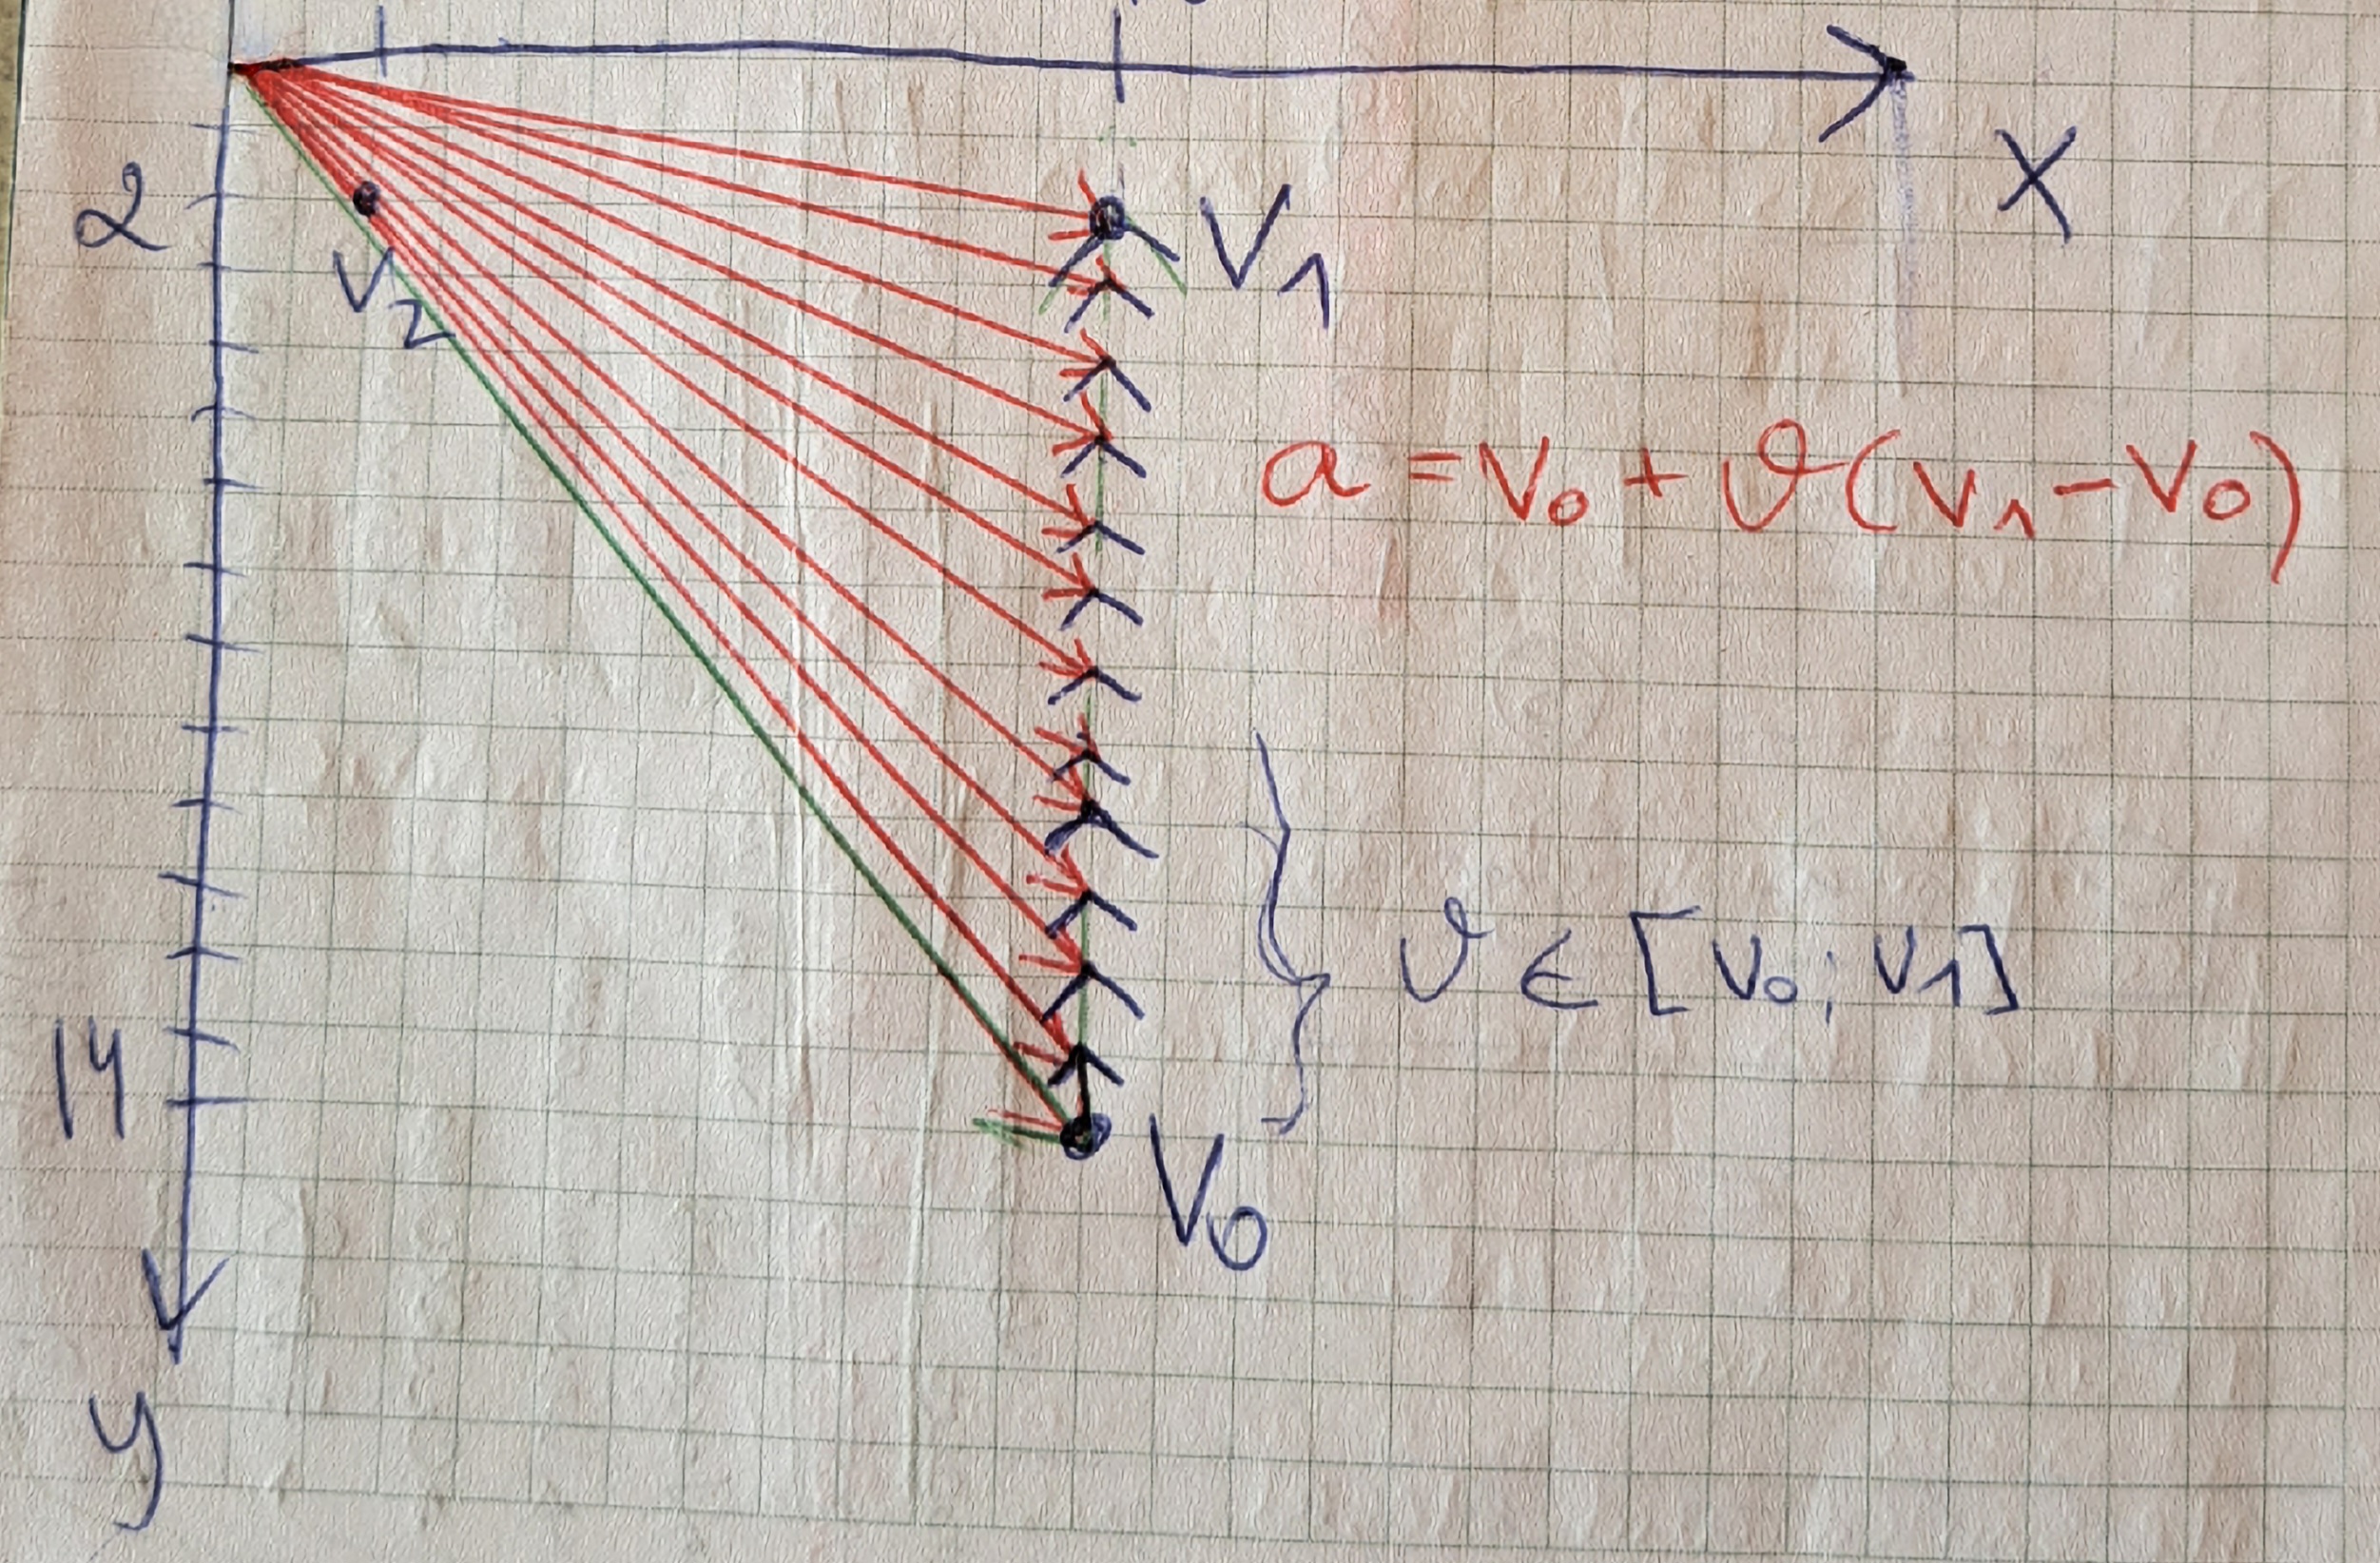 X
2
V₁
V₂
a = V₀ + ϑ(V₁ - V₀)
ϑ ∈ [V₀; V₁]
14
V₀
y